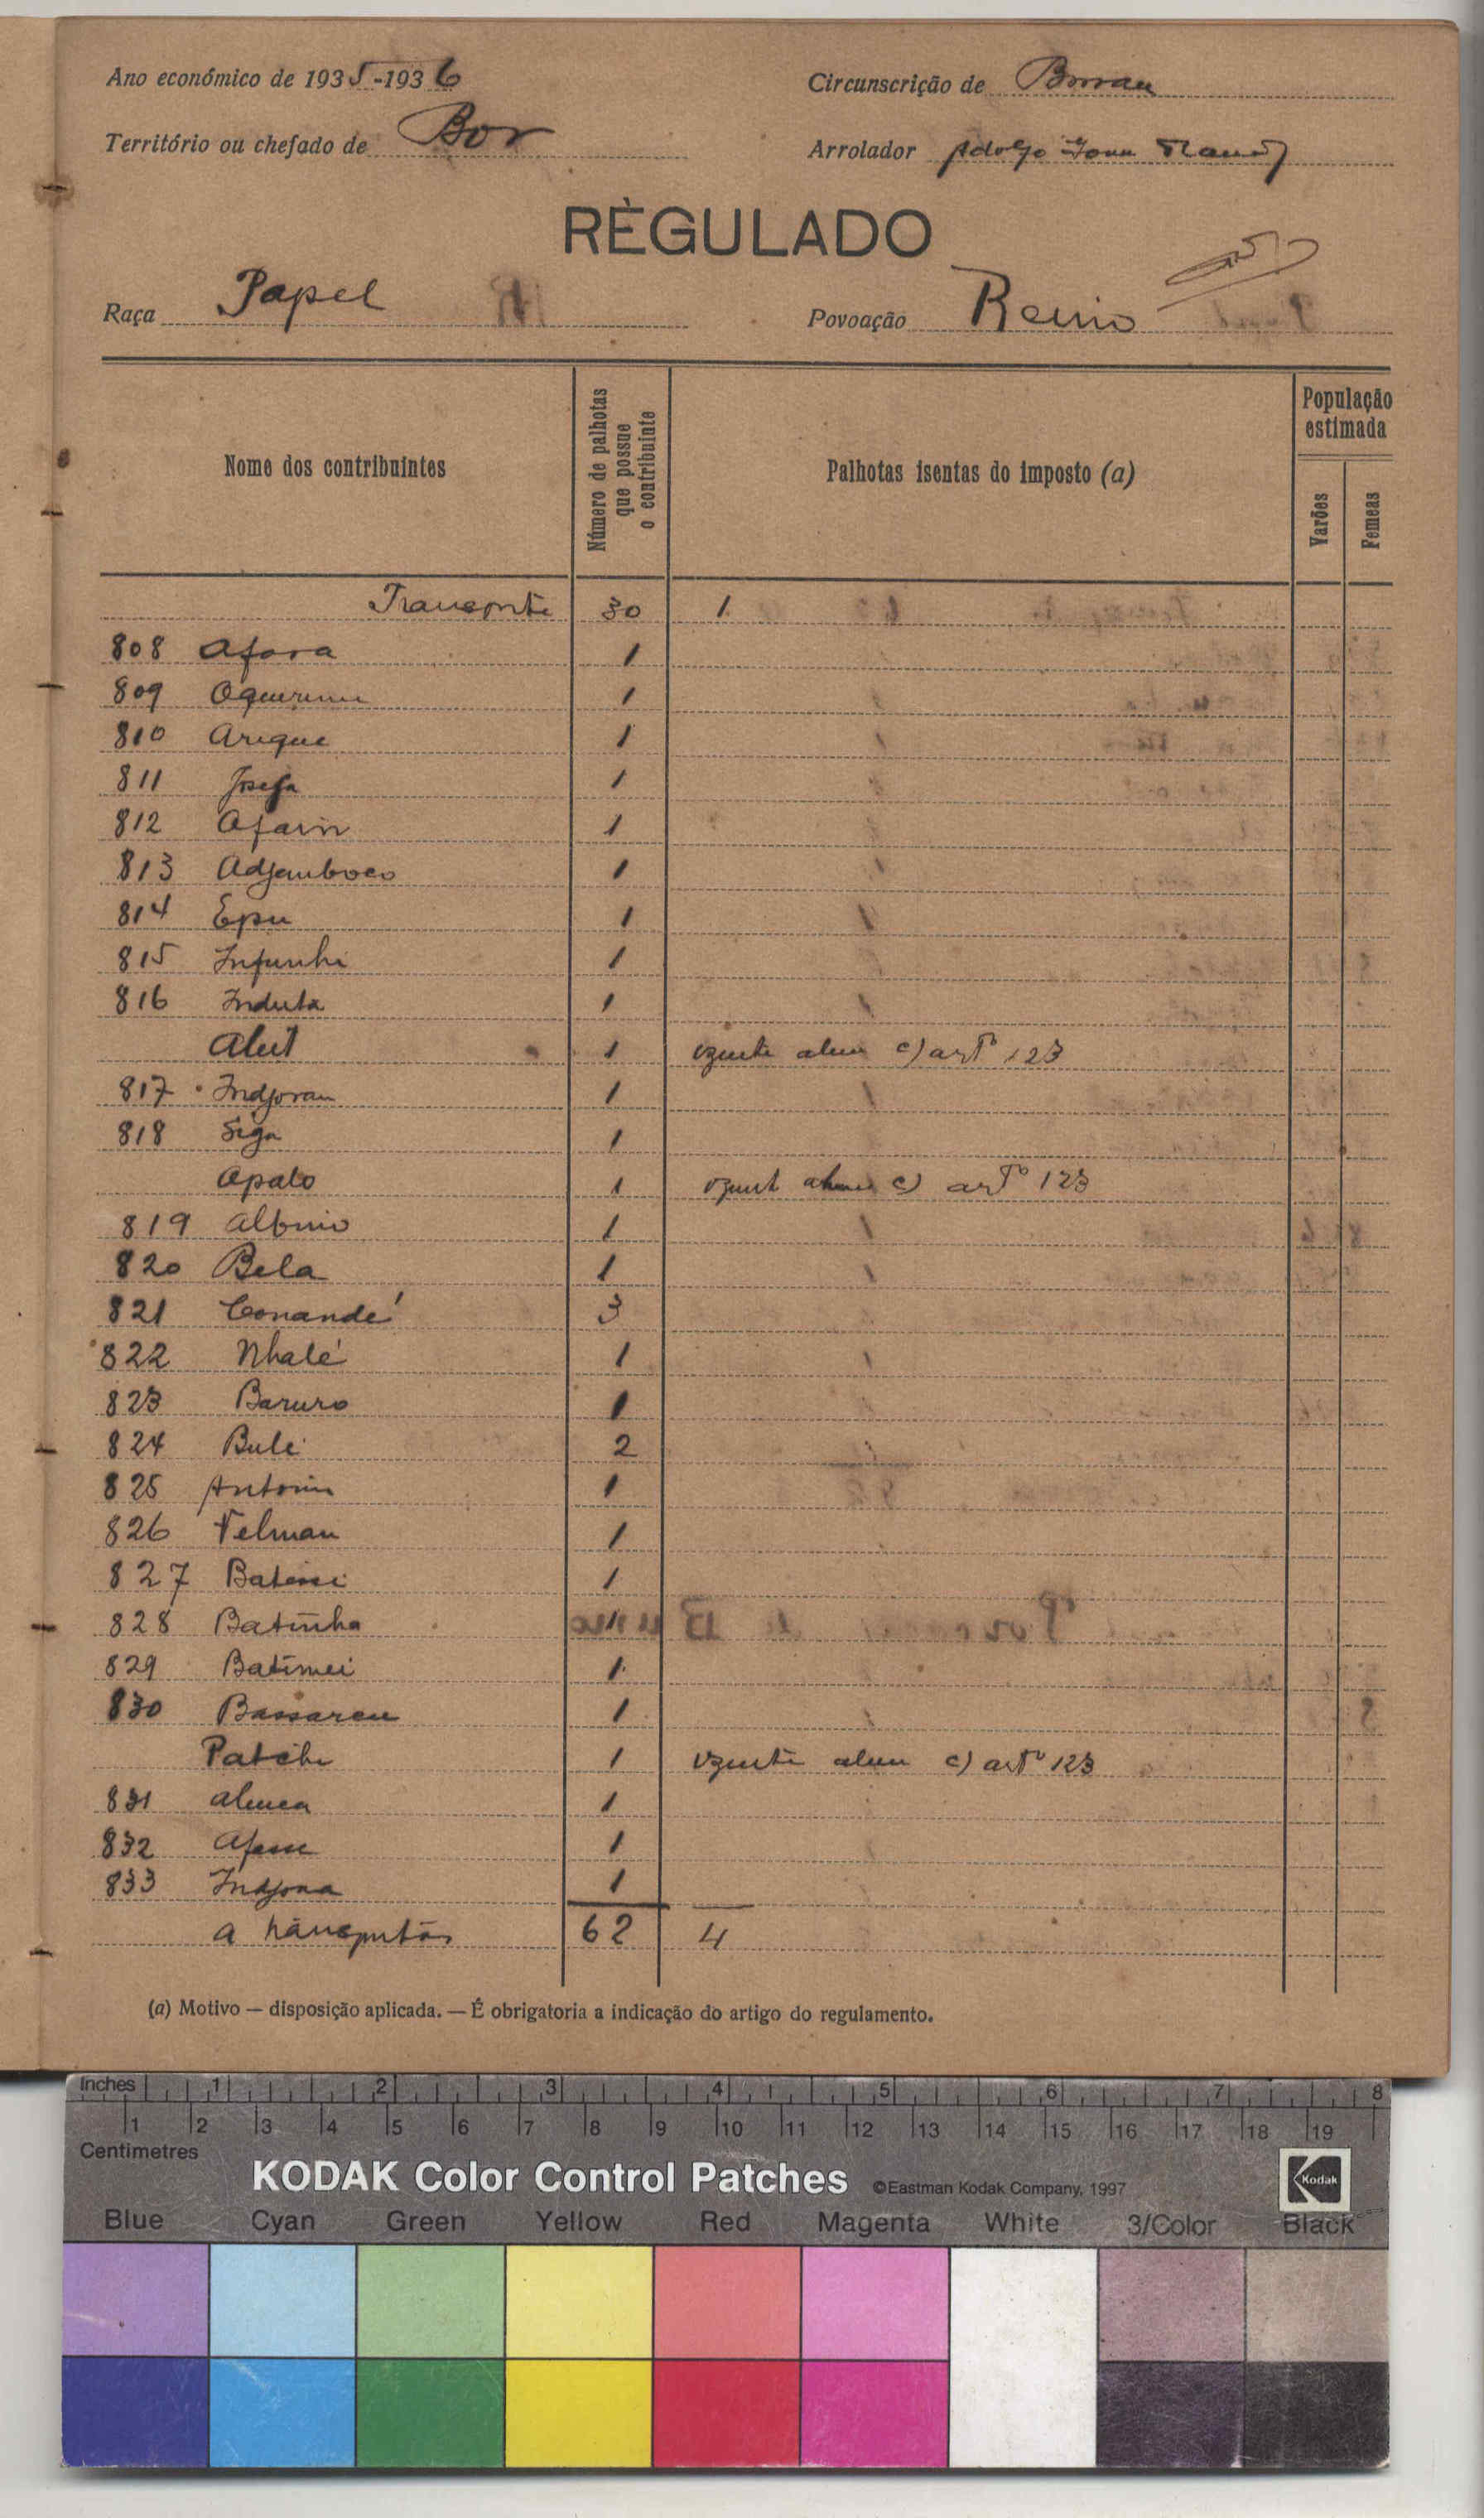 Ano económico de 1935-1936
Circunscrição de Bissau
Território ou chefado de Bor
Arrolador Adolfo
RÈGULADO
Raça Papel
Povoação Reino
Nome dos contribuintes
Número de palhotas que possue o contribuinte
Palhotas isentas do imposto (a)
População estimada
Varões
Femeas
Transporte 30 1
808 Afora 1
809 1
810 Arique 1
811 Josefa 1
812 1
813 Adjamboco 1
814 Epu 1
815 Infunhi 1
816 Induta 1
Alut 1 c) artº 123
817 Indjoran 1
818 Siga 1
Apalo 1 c) artº 123
819 Albino 1
820 Bela 1
821 Conandé 3
822 Nhalé 1
823 Baruro 1
824 Bule 2
825 Antonio 1
826 Telman 1
827 1
828 Batinha 1
829 Batimei 1
830 Bassareu 1
Patchi 1 c) artº 123
831 1
832 1
833 Indjona 1
a transportar 62 4
(a) Motivo — disposição aplicada. — É obrigatoria a indicação do artigo do regulamento.
Inches 1 2 3 4 5 6 7 8
1 2 3 4 5 6 7 8 9 10 11 12 13 14 15 16 17 18 19
Centimetres
KODAK Color Control Patches ©Eastman Kodak Company, 1997 Kodak
Blue Cyan Green Yellow Red Magenta White 3/Color Black